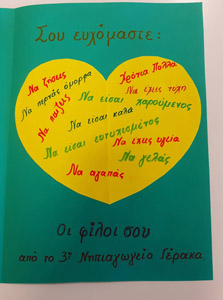 Σου ευχόμαστε:
Να ζήσεις
Χρόνια Πολλά
Να περνάς όμορφα
Να έχεις τύχη
Να παίζεις
Να είσαι χαρούμενος
Να είσαι καλά
Να είσαι ευτυχισμένος
Να έχεις υγεία
Να γελάς
Να αγαπάς
Οι φίλοι σου
από το 3º Νηπιαγωγείο Γέρακα